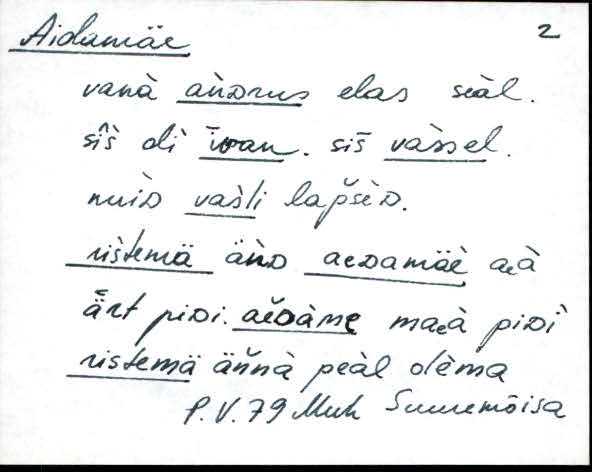 Aidamäe 2
vanà àǹᴅrus elas seàl.
sîš oli ìvan. siš vàssel.
nuiᴅ vašli lapšèᴅ.
rištemä äǹᴅ aeᴅamäè aeà
ärt piᴅi. aeᴅàme maeà piᴅì
ristemä äňnà peàl olèma
P.V. 79 Muh Suuremõisa